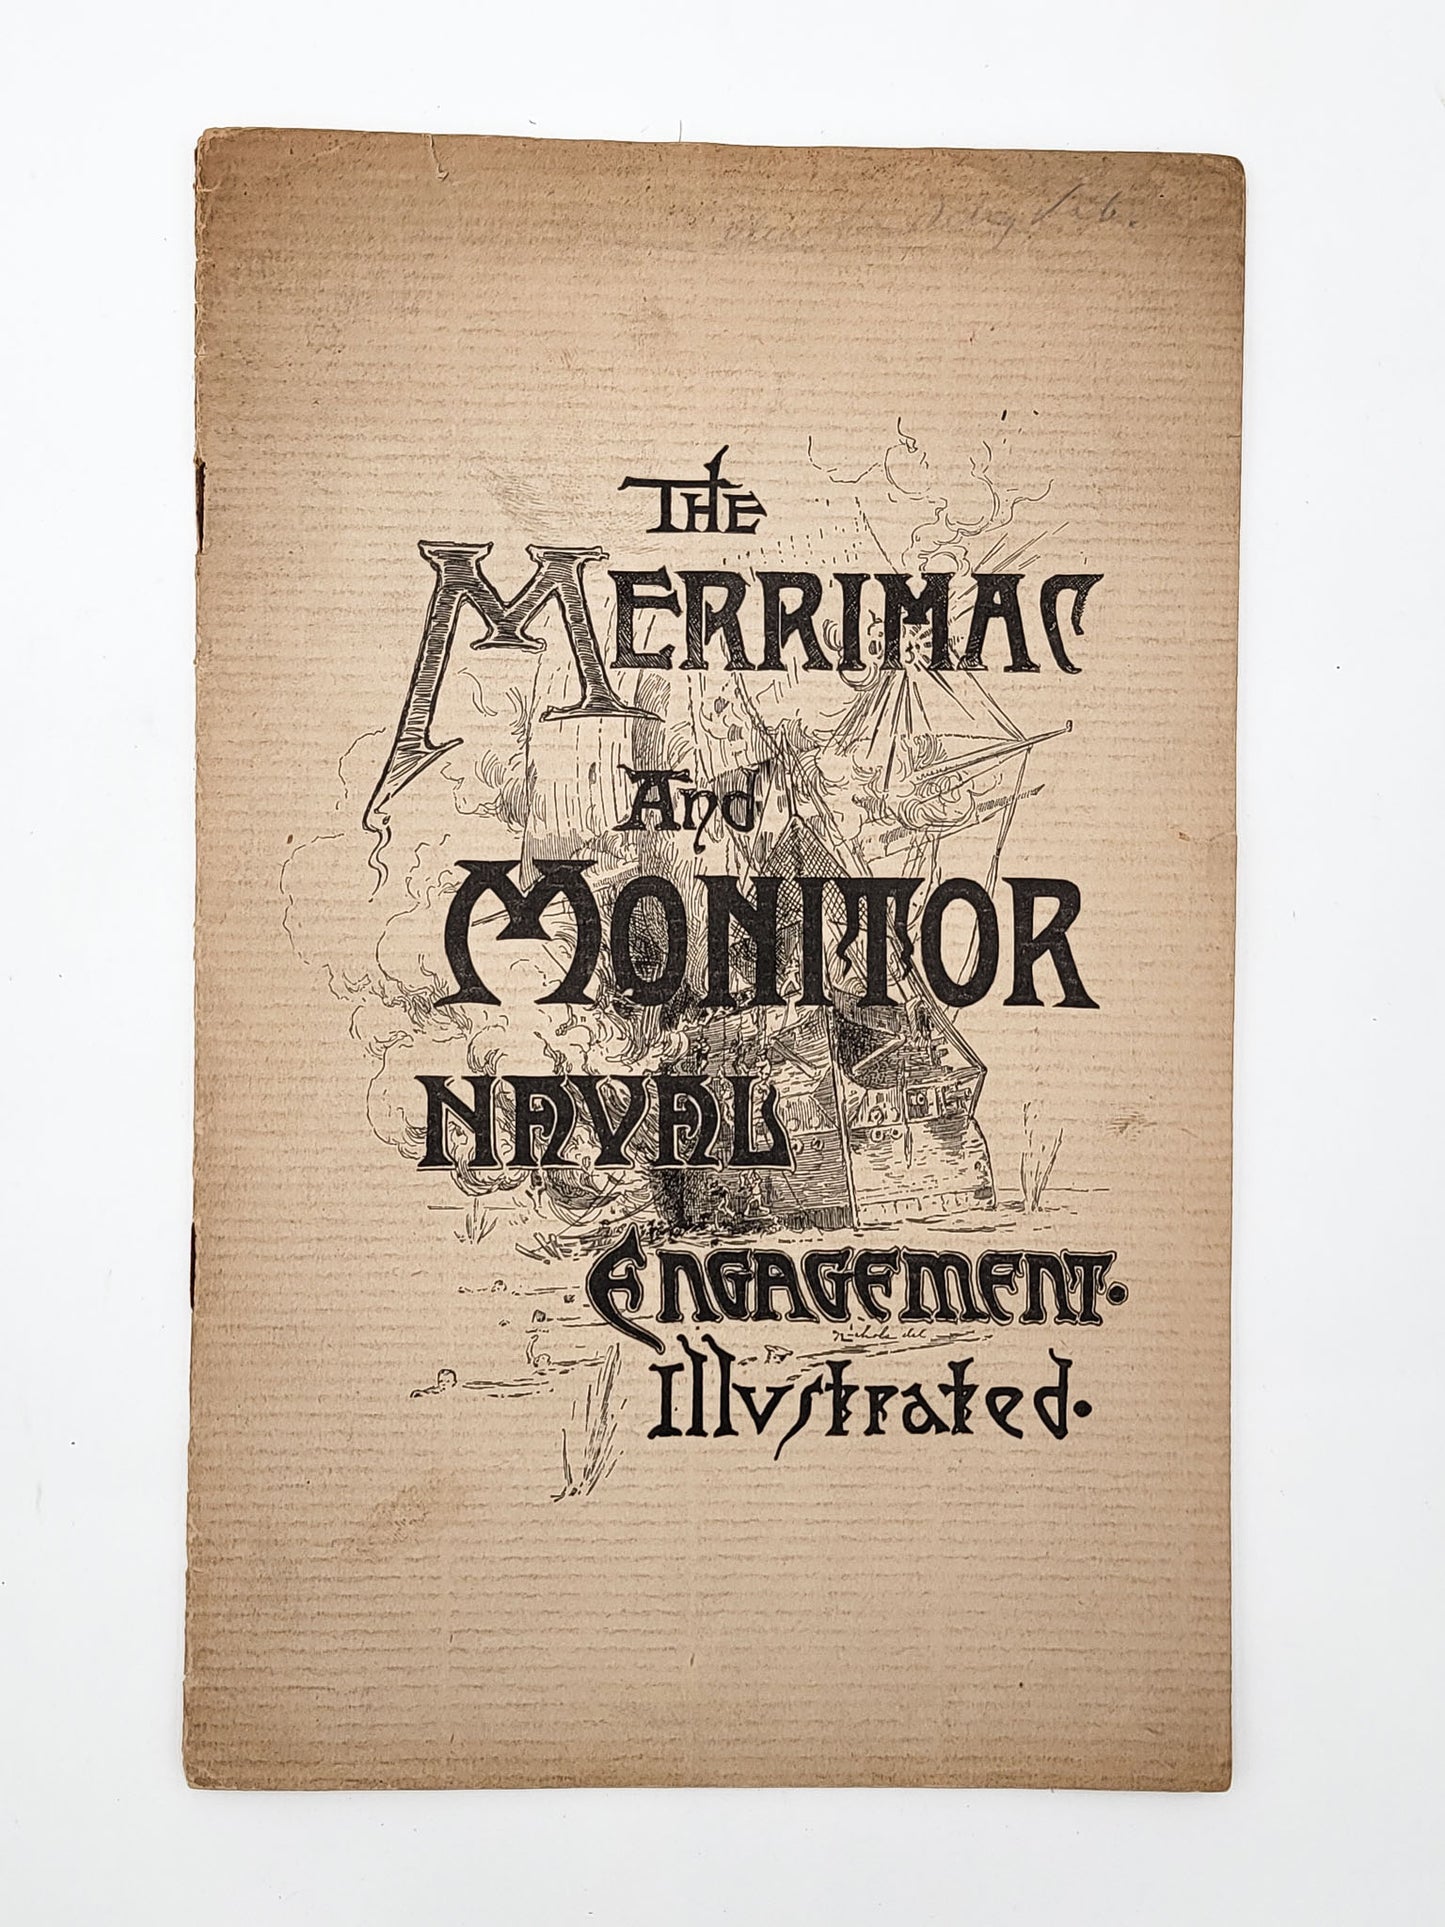 The
Merrimac
And
Monitor
Naval
Engagement.
Illustrated.